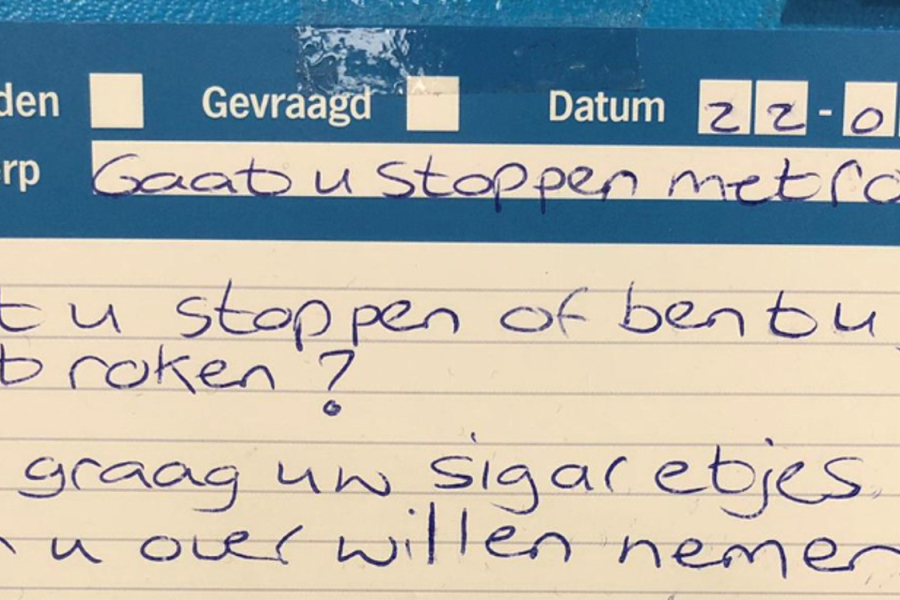 den Gevraagd Datum 22-0
rp Gaat u stoppen met ro
t u stoppen of bent u
t roken?
graag uw sigaretjes
n u over willen nemen